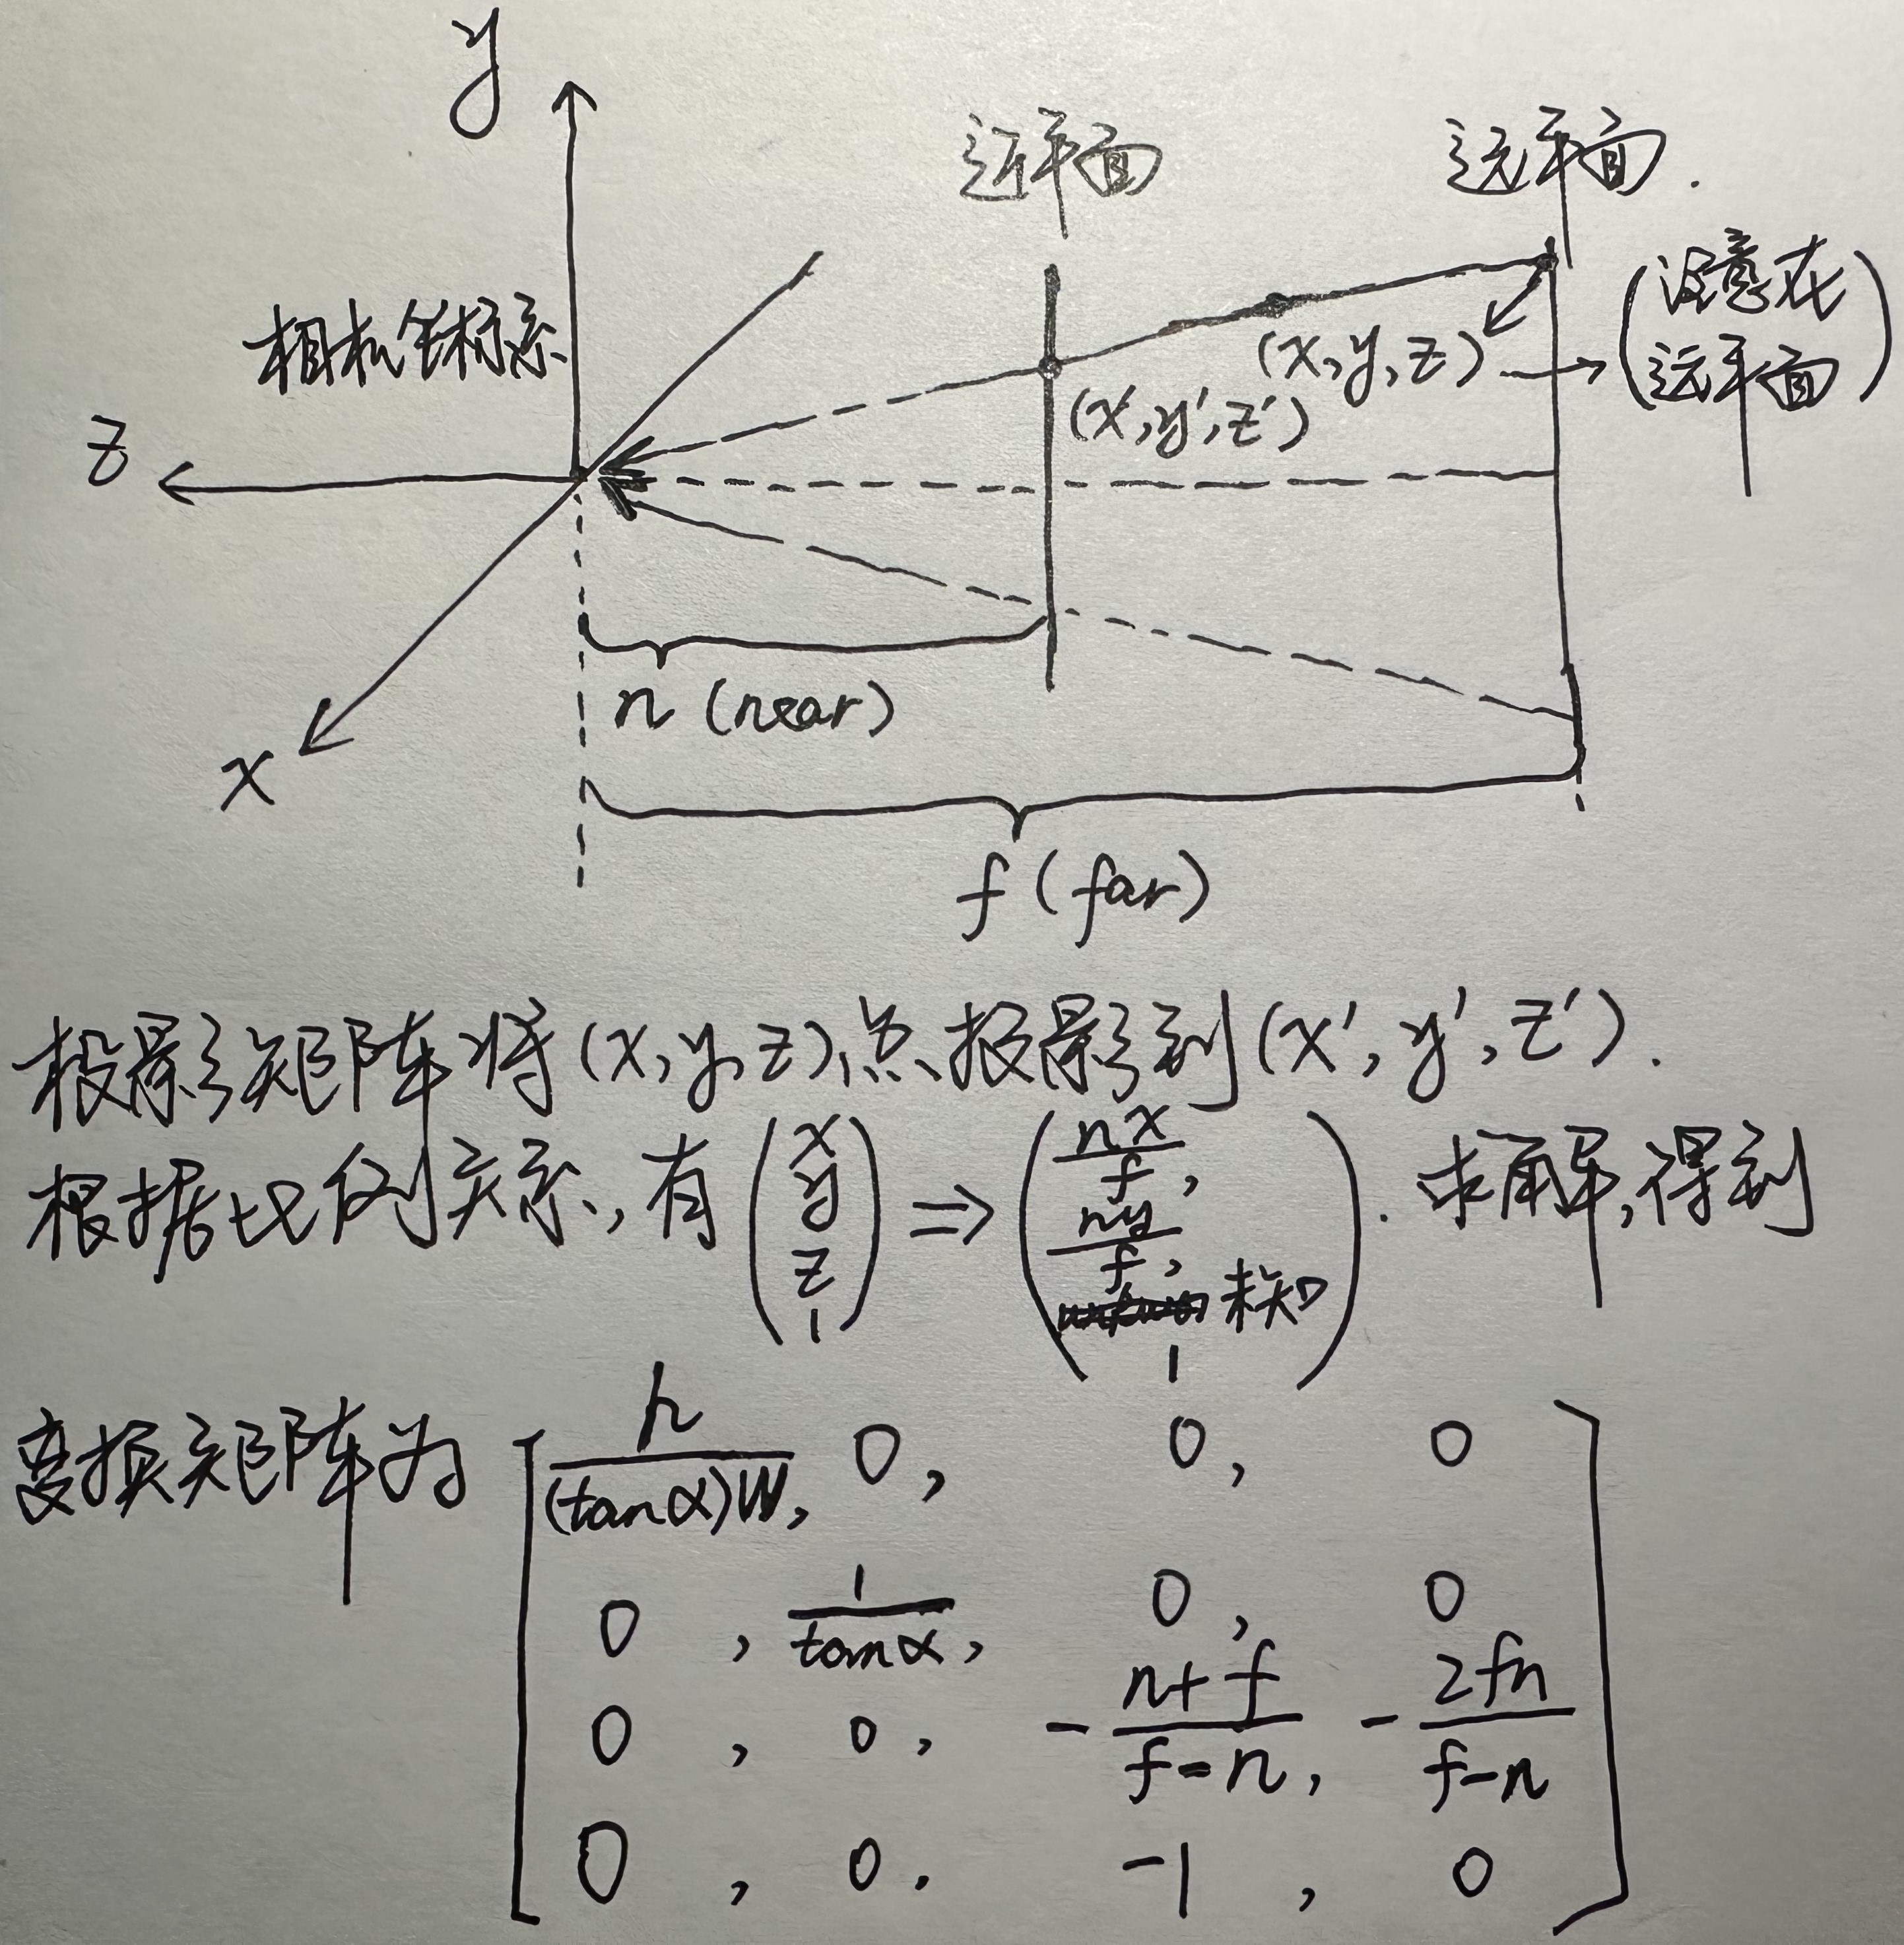 y
近平面
远平面.
相机坐标系
(注意在
远平面)
(x,y,z)
(x',y',z')
z
n (near)
x
f (far)
投影矩阵将(x,y,z)点投影到(x',y',z').
根据比例关系,有(x y z 1)⇒(nx/f, ny/f, 未知 1). 求解,得到
变换矩阵为
h/(tanα)W, 0, 0, 0
0, 1/tanα, 0, 0
0, 0, -n+f/f-n, -2fn/f-n
0, 0. -1, 0